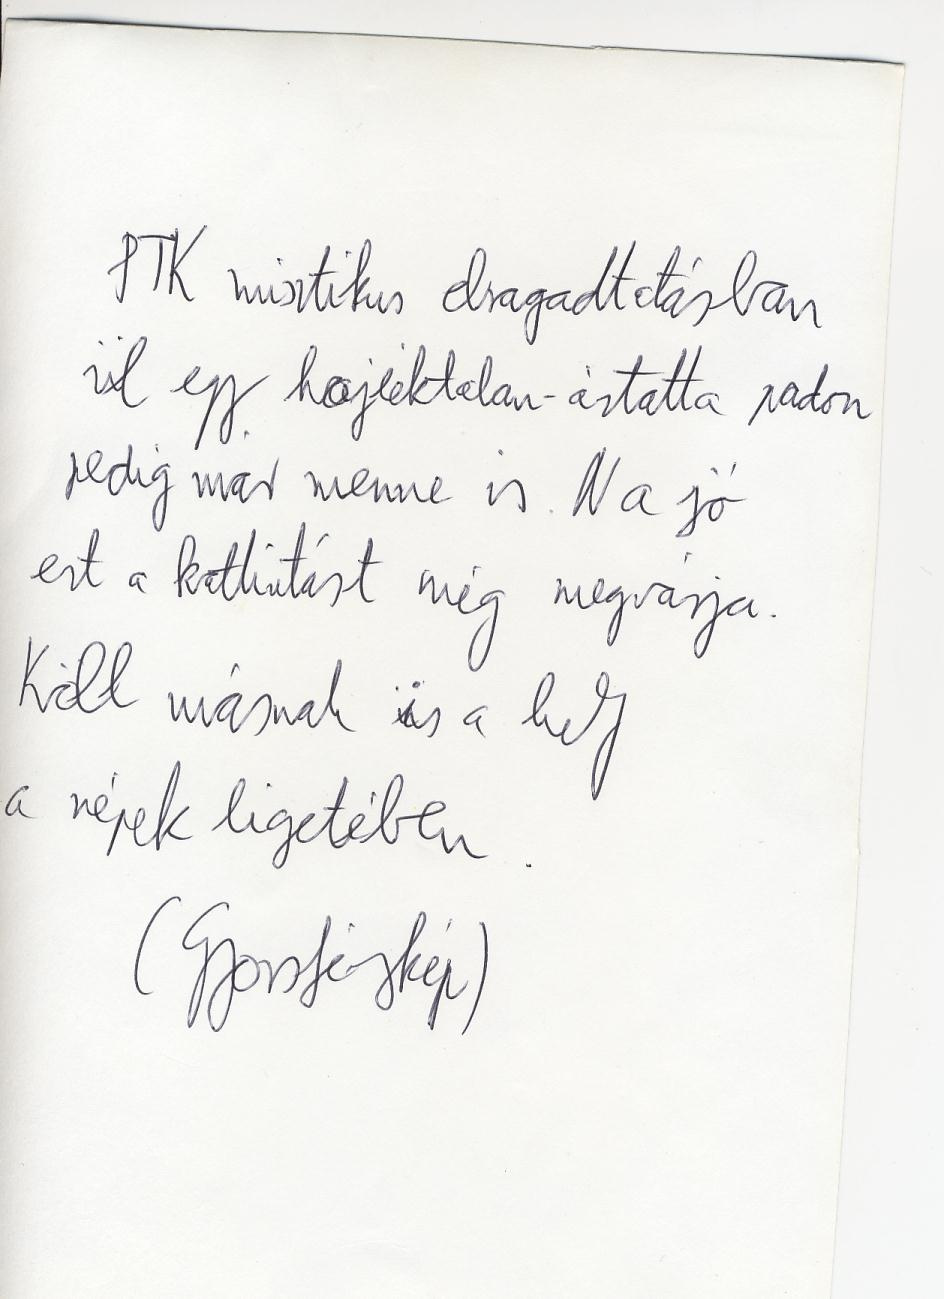 PTK misztikus elragadtatásban
ül egy hajléktalan-áztatta padon
pedig már menne is. Na jó
ezt a kattintást még megvárja.
Köll másnak is a hely
a népek ligetében.
(Gyorsfénykép)